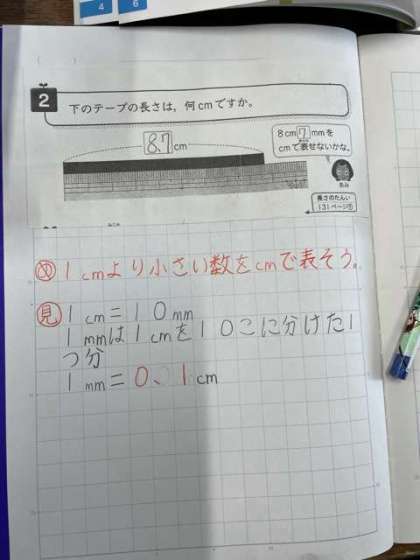 4 6
2 下のテープの長さは，何cmですか。
8cm7mmを
cmで表せないかな。
8.7cm
あみ
長さのたんい
131ページ
め 1cmより小さい数をcmで表そう。
見 1cm=10mm
1mmは1cmを10こに分けた1
つ分
1mm=0、1cm